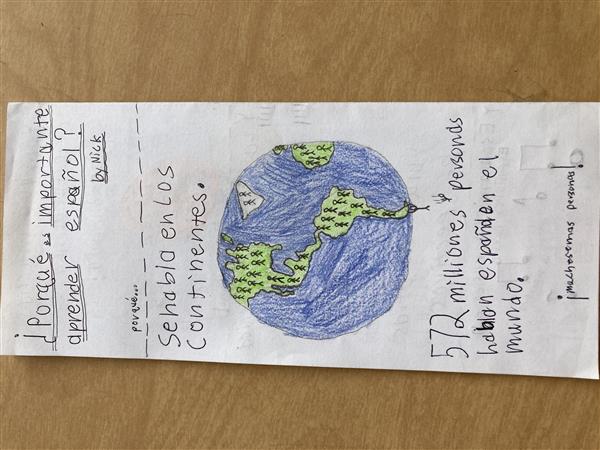 ¿Porqué es importante
aprender español?
by Nick
porqué...
Se habla en los
continentes.
572 milliones personas
hablan español en el
mundo.
¡muchasemas personas!